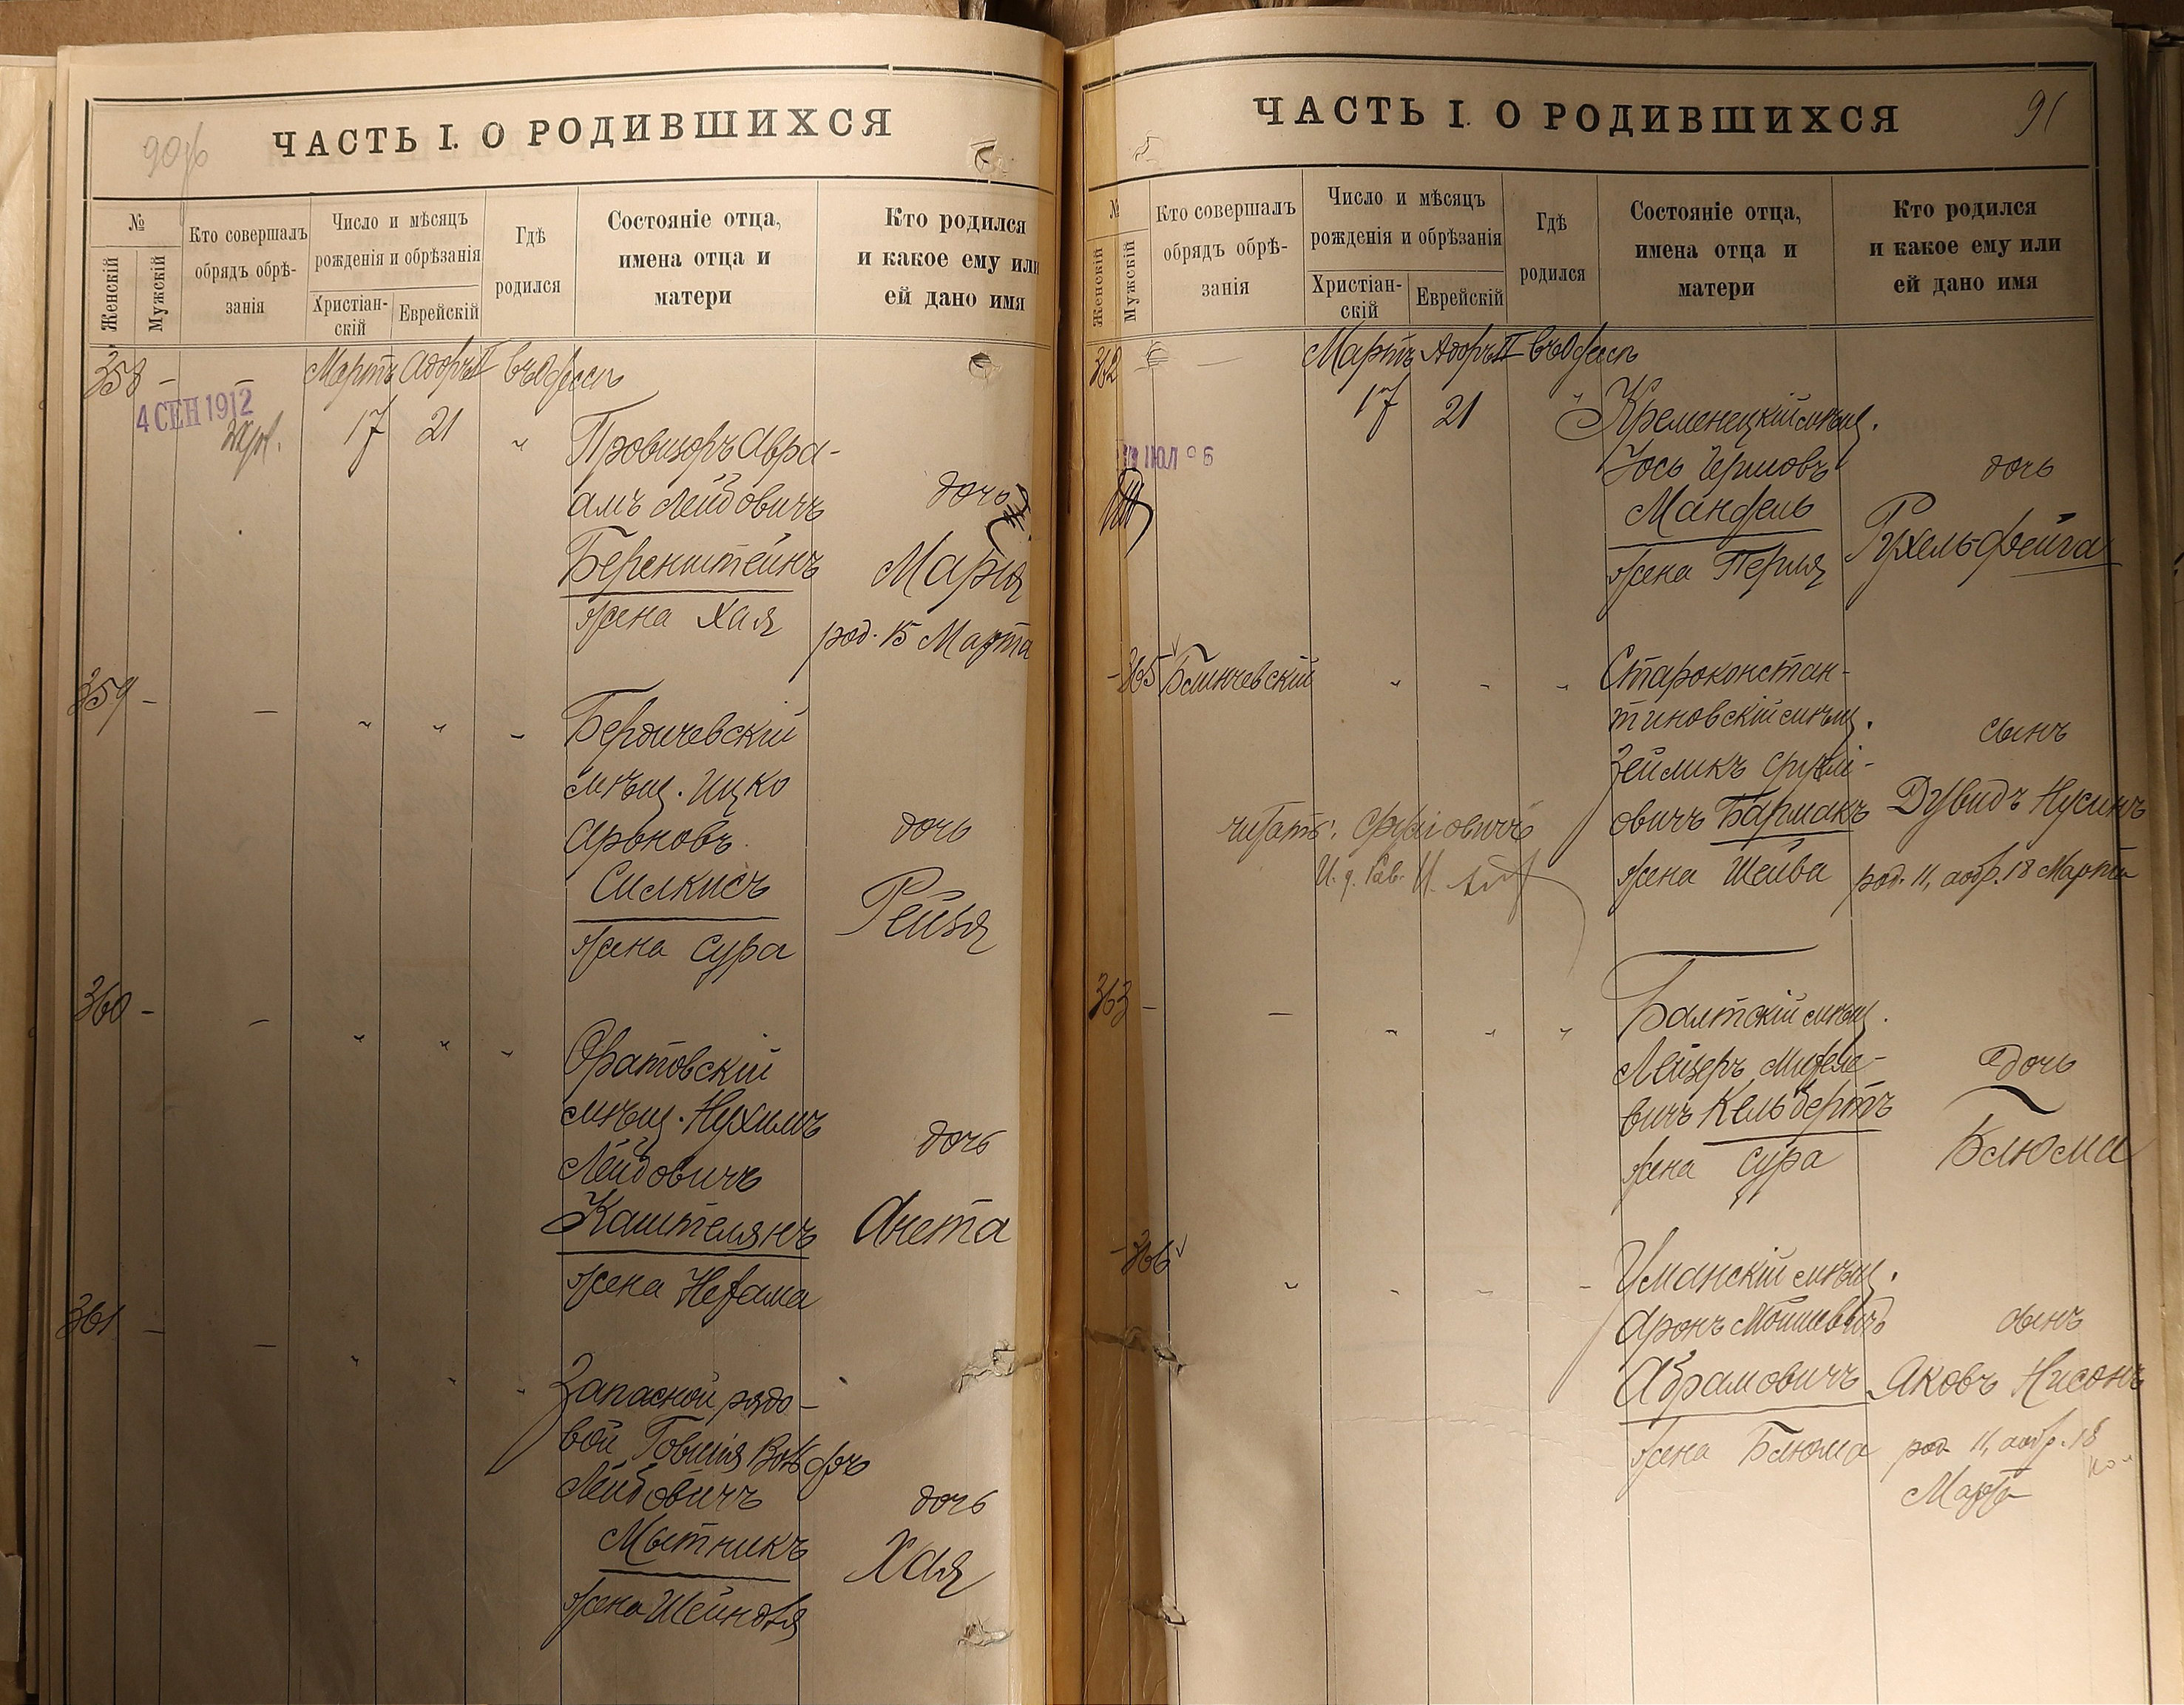 90об
ЧАСТЬ I. О РОДИВШИХСЯ
№
Женскій
Мужскій
Кто совершалъ
обрядъ обрѣ-
занія
Число и мѣсяцъ
рожденія и обрѣзанія
Христіан-
скій
Еврейскій
Гдѣ
родился
Состояніе отца,
имена отца и
матери
Кто родился
и какое ему или
ей дано имя
358 - - Мартъ Адоръ II въ Одессѣ
4 СЕН 1912
17 21 "
Провизоръ Авра-
амъ Лейбовичъ
Беренштейнъ
жена Хая
дочь
Марія
род. 15 Марта
359 - - " " "
Бердичевскій
мѣщ. Ицко
Арьновъ
Силкисъ
жена Сура
дочь
Рейзя
360 - - " " "
Оратовскій
мѣщ. Нухимъ
Лейбовичъ
Каштелянъ
жена Нехама
дочь
Анета
361 - - " " "
Запасной рядо-
вой Товшія Вольфъ
Лейбовичъ
Мытникъ
жена Шейндля
дочь
Хая
91
ЧАСТЬ I. О РОДИВШИХСЯ
№
Женскій
Мужскій
Кто совершалъ
обрядъ обрѣ-
занія
Число и мѣсяцъ
рожденія и обрѣзанія
Христіан-
скій
Еврейскій
Гдѣ
родился
Состояніе отца,
имена отца и
матери
Кто родился
и какое ему или
ей дано имя
362 - Мартъ Адоръ II въ Одессѣ
17 21 "
ИЮЛ
Кременецкій мѣщ.
Іось Гершовъ
Мандель
жена Перля
дочь
Рухель-Фейга
- 365 Блинчевскій " " "
Староконстан-
тиновскій мѣщ.
Зейликъ Срулі-
овичъ Бармакъ
жена Шейва
сынъ
Дувидъ Нусинъ
род. 11, аобр. 18 Марта
читать: Сруліовичъ
И. д. Рав.
363 - - " " "
Балтскій мѣщ.
Лейзеръ Михеле-
вичъ Кельбертъ
жена Сура
дочь
Блюма
- 366 " " " "
Уманскій мѣщ.
Аронъ Мошшевичъ
Абрамовичъ
жена Блюма
сынъ
Яковъ Нисонъ
род 11, аобр. 18
Марта